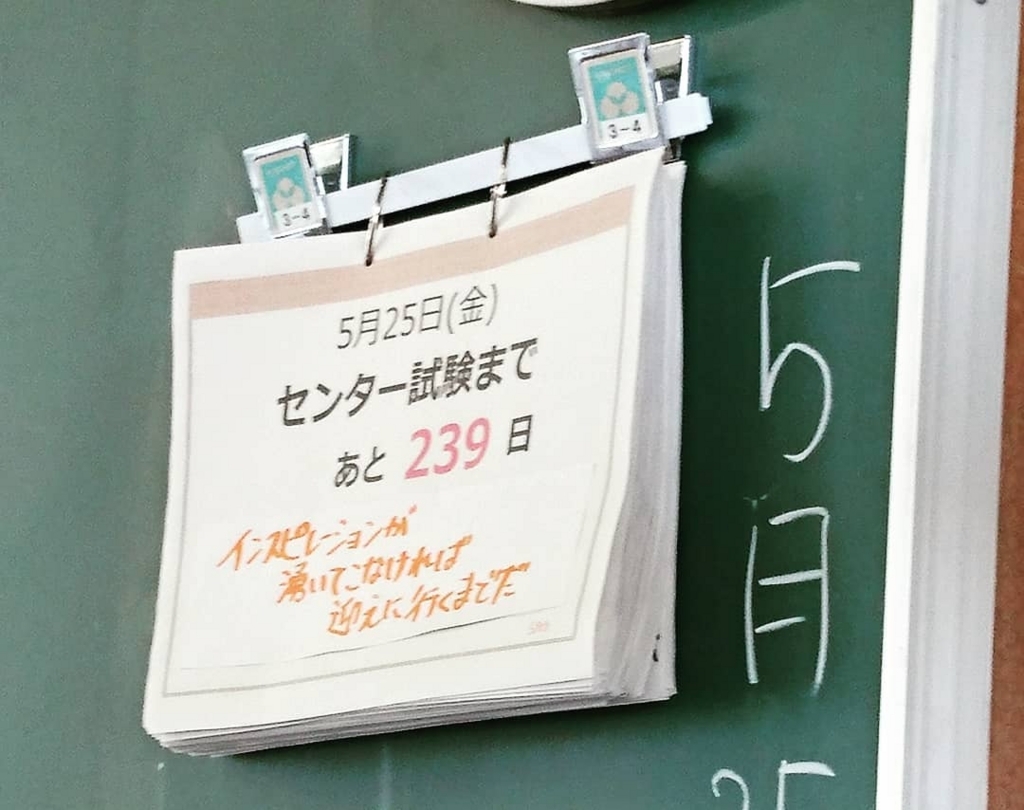 3-4
3-4
5月25日(金)
センター試験まで
あと 239 日
インスピレーションが
湧いてこなければ
迎えに行くまでだ
5月
25